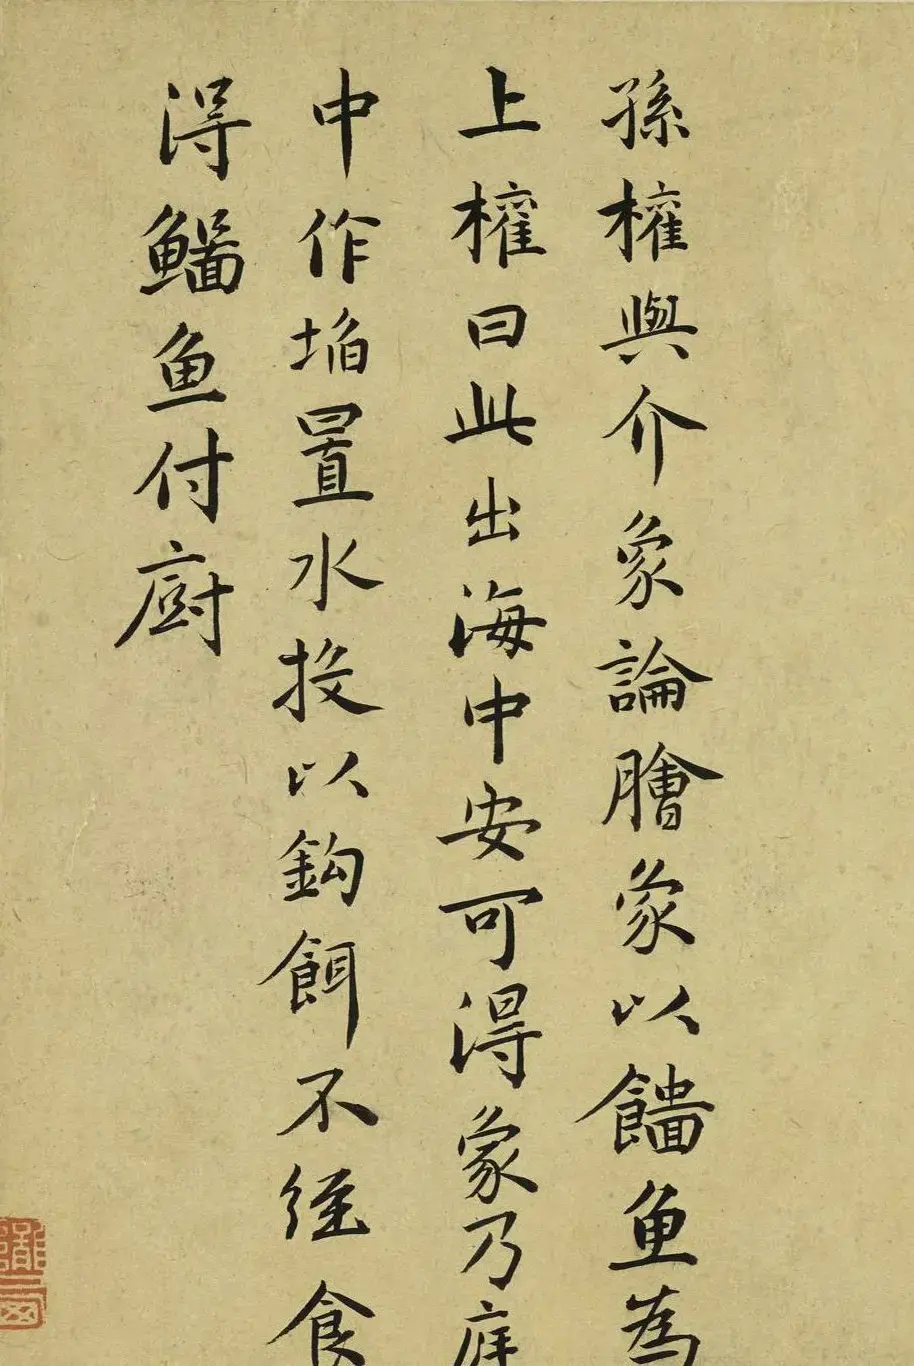 孫權與介象論膾象以魚為
上權曰此出海中安可得象乃庭
中作埳置水投以鈎餌不經食
得鯔魚付廚